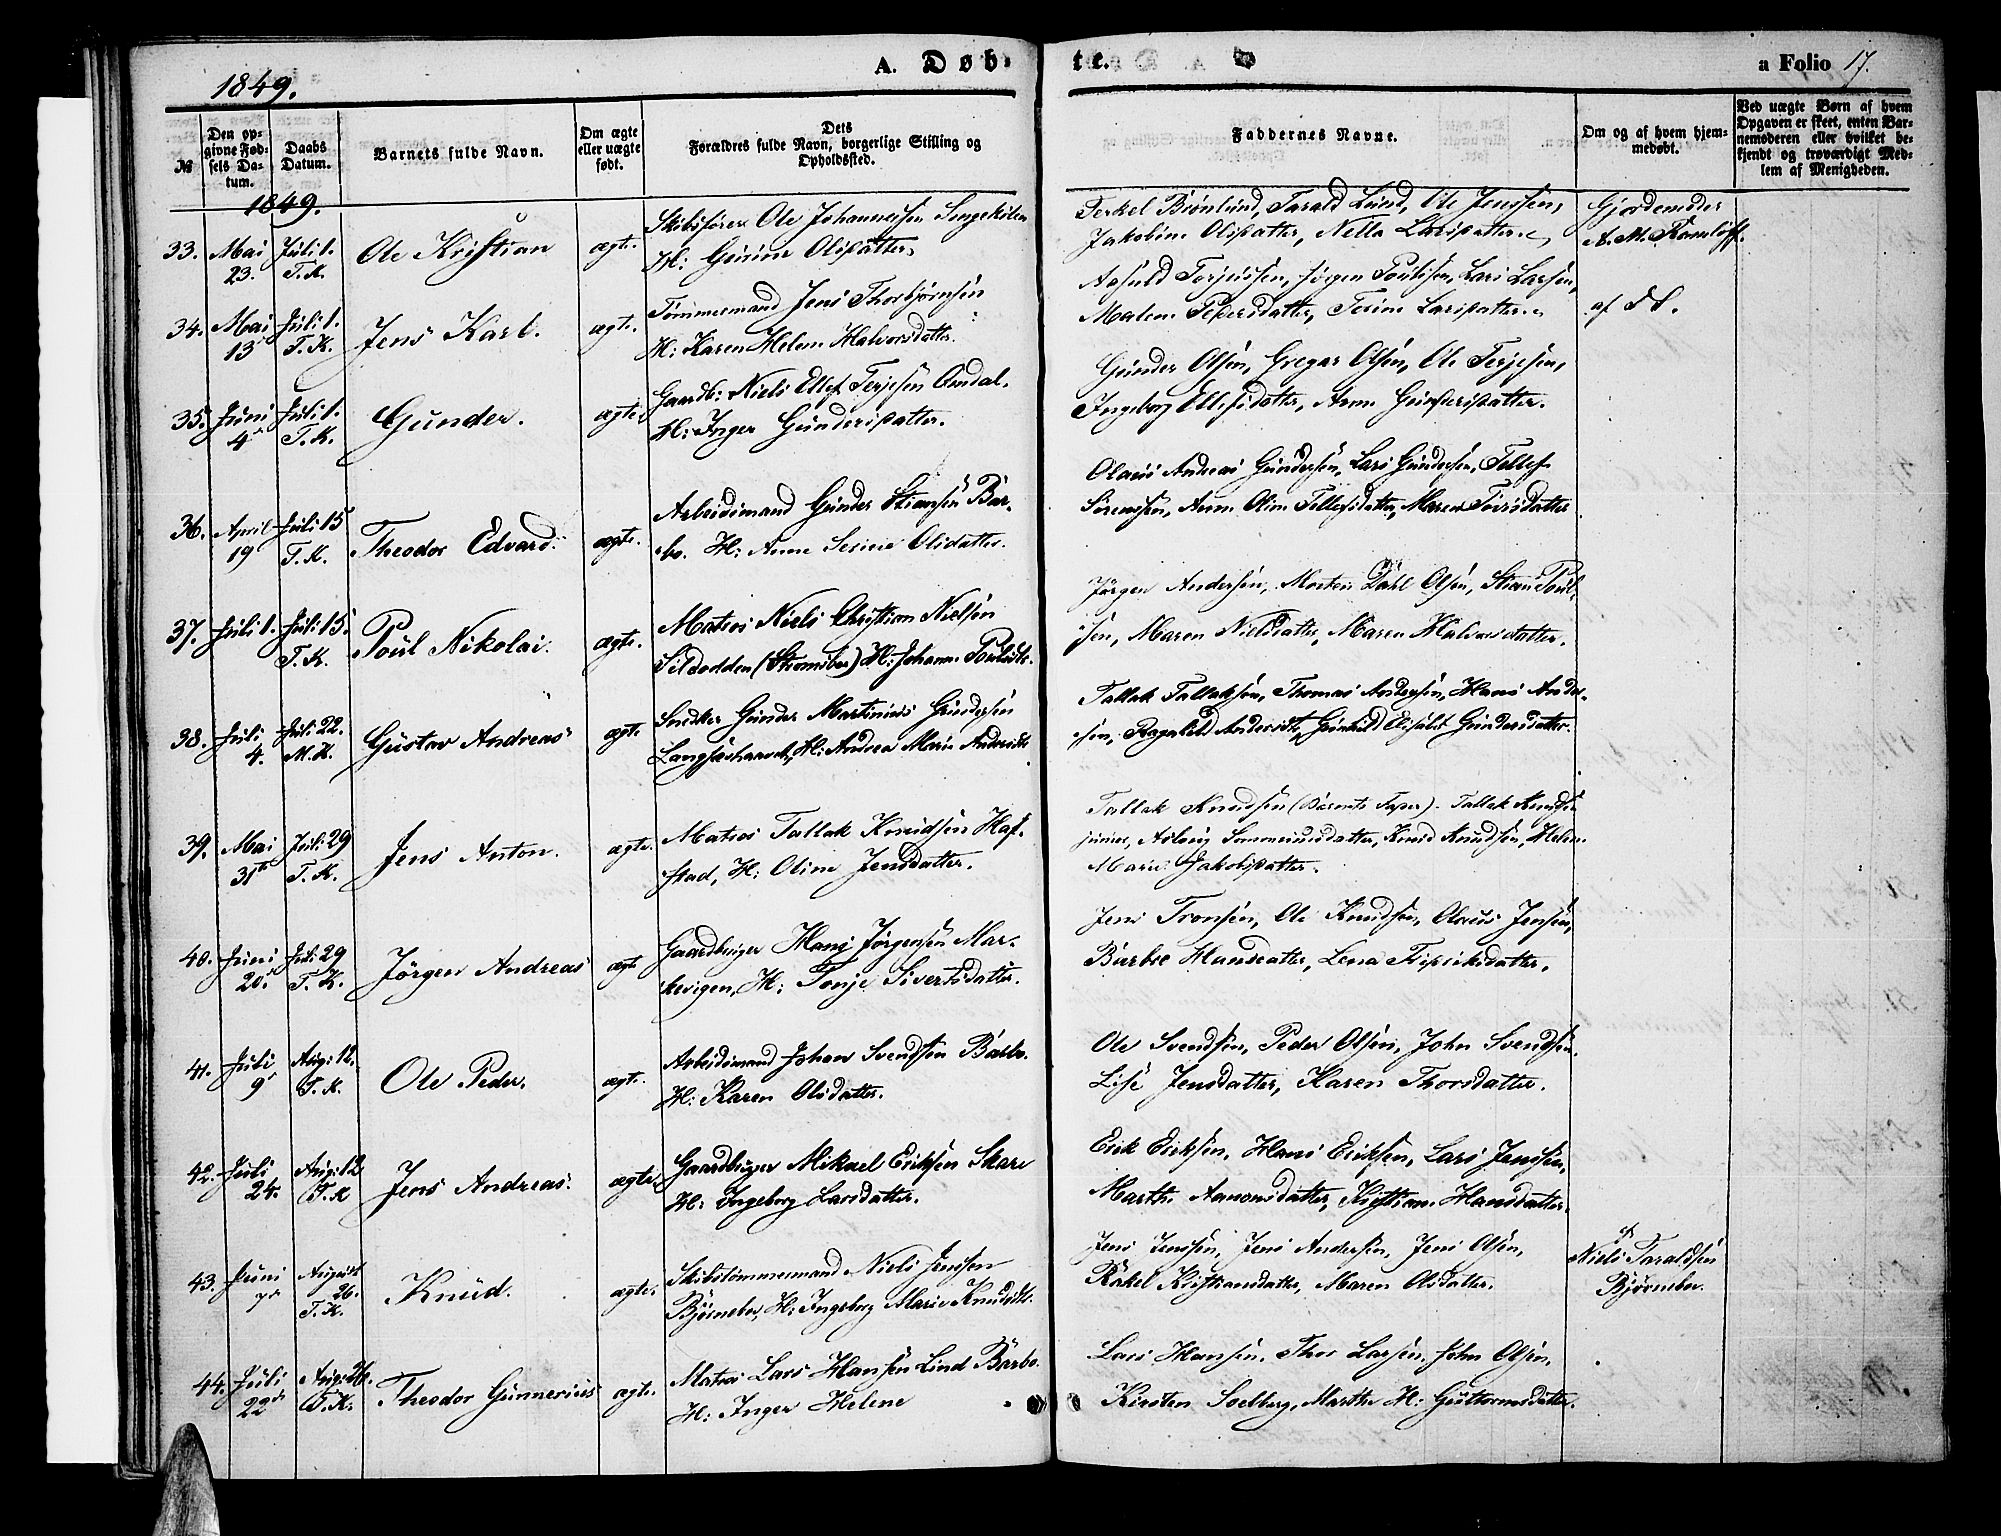 1849.
A. Døb-
te.
a Folio 17.
№
Den op-
givne Fød-
sels Da-
tum.
Daabs
Datum.
Barnets fulde Navn.
Om ægte
eller uægte
født.
Dets
Forældres fulde Navn, borgerlige Stilling og
Opholdssted.
Faddernes Navne.
Om og af hvem hjem-
medøbt.
Ved uægte Børn af hvem
Opgaven er skeet, enten Bar-
nemoderen eller hvilket be-
kjendt og troværdigt Med-
lem af Menigheden.
1849.
33. Mai 23. Juli 1. T. K. Ole Kristian ægte.
Skibsfører Ole Johannessen
H: Gurine Olsdatter
Terkel Brønlund, Tarald Lund, Ole Jenssen,
Jakobine Olsdatter, Nella Larsdatter.
Gjordemoder
A. M.
34. Mai 13 Juli 1. T. K. Jens Karl. ægte.
Tømmermand Jens Thorbjørnsen
H: Karen Helene Halvorsdatter.
Aasuld Torjussen, Jørgen Poulssen, Lars Larsen,
Malene Pedersdatter, Terine Larsdatter.
af do.
35. Juni 4 Juli 1. T. K. Gunder. ægte.
Gaardb: Niels Ellef Terjesen Omdal.
H: Inger Gundersdatter.
Gunder Olsen, Gregar Olsen, Ole Terjesen,
Ingeborg Ellefsdatter, Anne Gundersdatter.
36. April 19 Juli 15 T. K. Theodor Edvard. ægte.
Arbeidsmand Gunder Stiansen Bar-
bo. H: Anne Serine Olsdatter.
Olaus Andreas Gundersen, Lars Gundersen, Tellef
Sørenssen, Anne Oline Tellefsdatter, Maren
37. Juli 1. Juli 15. T. K. Poul Nikolai. ægte.
Matros Niels Christian Nielsen
Sildodden (Strømsbo) H: Johanne Poulsdtr.
Jørgen Andersen, Morten Dahl Olsen, Stian Poul-
sen, Maren Nielsdatter, Maren Halvorsdatter.
38. Juli 4. Juli 22. M. K. Gustav Andreas ægte.
Snedker Gunder Martinius Gundersen
Langsæhaavet, H: Andrea Marie Andersdtr.
Tallak Tallaksen, Thomas Andersen, Hans Ander-
sen, Ragnhild Andersdtr, Gunhild Elisabet Gundersdatter.
39. Mai 31te Juli 29 T. K. Jens Anton. ægte.
Matros Tallak Knudsen Haf-
stad, H: Oline Jensdatter.
Tallak Knudsen (Barnets Fader). Tallak Knudsen
junior, Aslaug Sommersdatter, Knud Knudsen, Helene
Marie Jakobsdatter.
40. Juni 20 Juli 29 T. K. Jørgen Andreas ægte
Gaardbruger Hans Jørgensen Mar-
kevigen, H: Tonje Sivertsdatter.
Jens Tronsen, Ole Knudsen, Olaus Jensen,
Barbro Hansdatter, Lena Didriksdatter.
41. Juli 9 Aug: 12. T. K. Ole Peder. ægte.
Arbeidsmand Johan Svendsen Barbo.
H: Karen Olsdatter.
Ole Svendsen, Peder Olsen, John Svendsen.
Lise Jensdatter, Karen Thorsdatter.
42. Juli 24. Aug: 12 T. K Jens Andreas. ægte.
Gaardbruger Mikael Eriksen Skare
H: Ingeborg Larsdatter.
Erik Eriksen, Hans Eriksen, Lars Jenssen,
Marthe Aanonsdatter, Kristiane Hansdatter.
43. Juni 7 August 26. T. K. Knud. ægte.
Skibstømmermand Niels Jenssen
Bjørnebo, H: Ingeborg Marie Knudsdtr.
Jens Jenssen, Jens Andersen, Jens Olsen,
Rakel Kristiansdatter, Maren Olsdatter.
af
Niels Taraldsen
Bjørnebo.
44. Juli 22 Aug: 26. T. K. Theodor Gunnerius ægte.
Matros Lars Hansen Lind Barbo.
H: Inger Helene
Lars Hansen. Thor Larsen. John Olsen.
Kirsten Soelberg, Marthe H: Guttormsdatter.